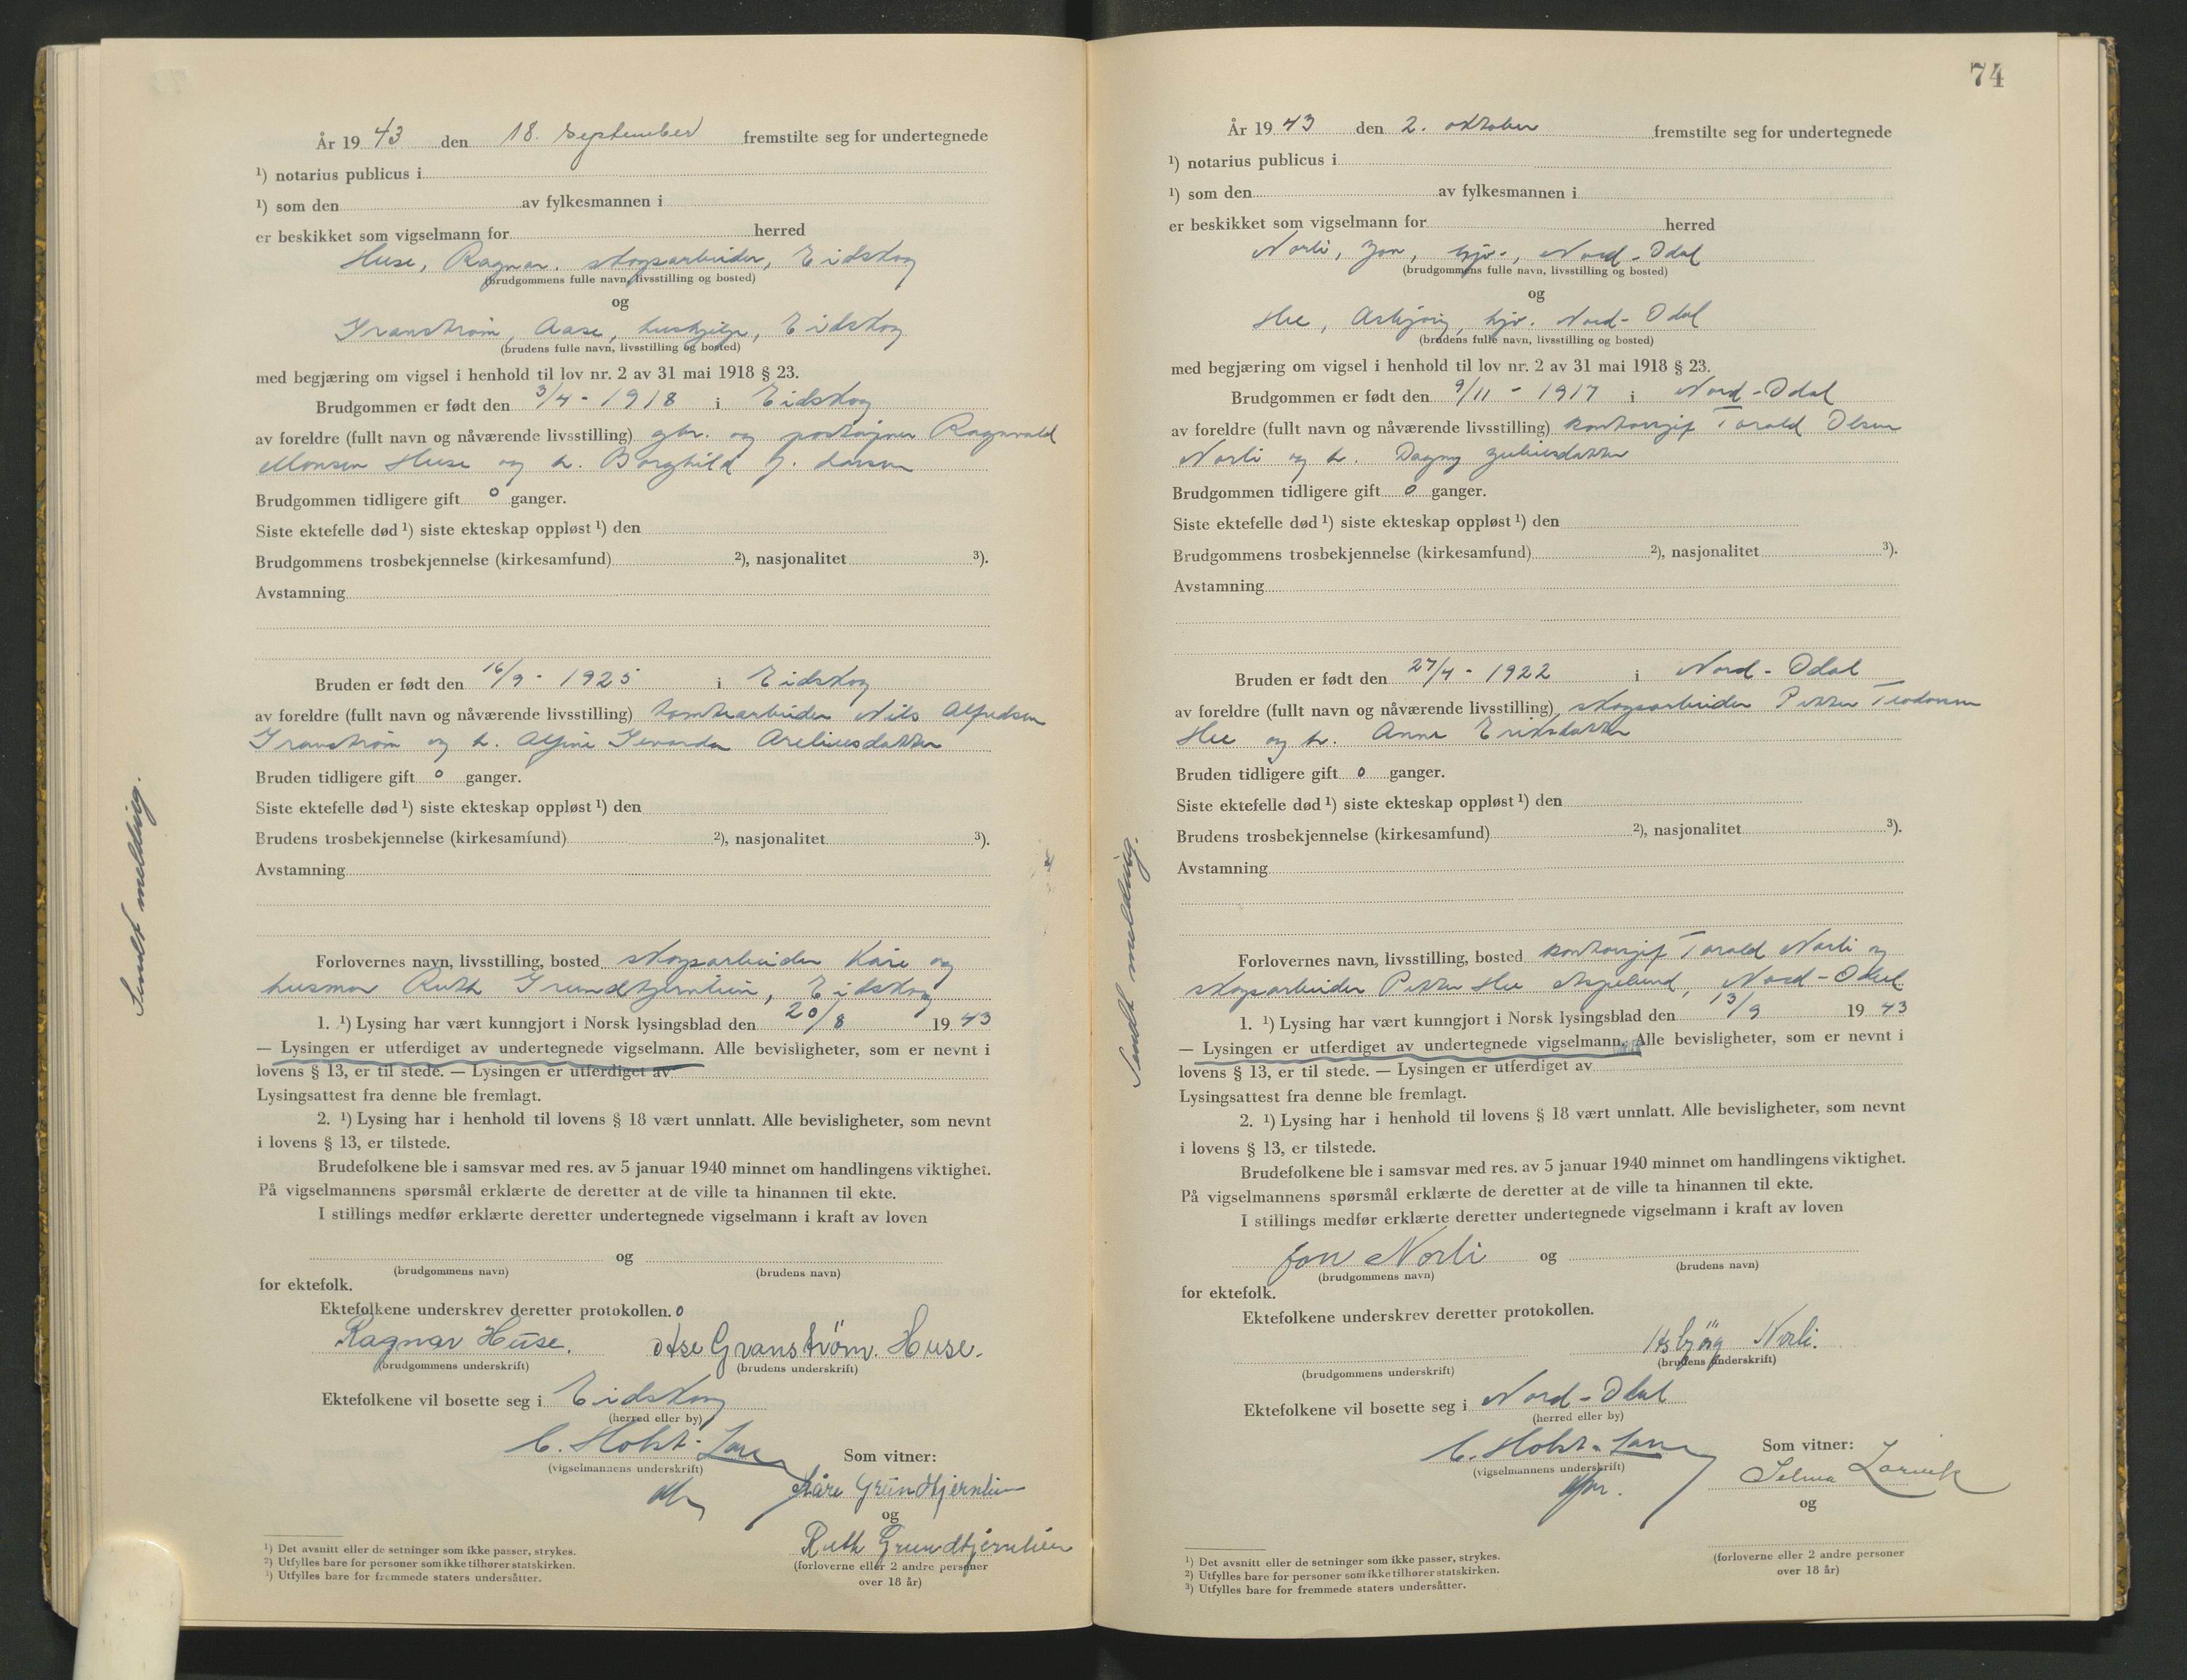 År 19 43 den 18. September fremstilte seg for undertegnede
¹) notarius publicus i
¹) som den av fylkesmannen i
er beskikket som vigselmann for herred
Huse, Ragnar, skogsarbeider, Eidskog
(brudgommens fulle navn, livsstilling og bosted)
og
Granstrøm, Aase, hushjelp, Eidskog
(brudens fulle navn, livsstilling og bosted)
med begjæring om vigsel i henhold til lov nr. 2 av 31 mai 1918 § 23.
Brudgommen er født den 3/4 - 1918 i Eidskog
av foreldre (fullt navn og nåværende livsstilling) gbr. og poståpner Ragnvald
Monsen Huse og h. Borghild J. Larsen
Brudgommen tidligere gift 0 ganger.
Siste ektefelle død ¹) siste ekteskap oppløst ¹) den
Brudgommens trosbekjennelse (kirkesamfund) ²), nasjonalitet ³).
Avstamning
Bruden er født den 16/9 - 1925 i Eidskog
av foreldre (fullt navn og nåværende livsstilling) tomtearbeider Nils Alfredsen
Granstrøm og h. Alfine Gevarda Areliusdatter
Bruden tidligere gift 0 ganger.
Siste ektefelle død ¹) siste ekteskap oppløst ¹) den
Brudens trosbekjennelse (kirkesamfund) ²), nasjonalitet ³).
Avstamning
Forlovernes navn, livsstilling, bosted skogsarbeider Kåre og
husmor Ruth Grundtjernlien, Eidskog
1. ¹) Lysing har vært kunngjort i Norsk lysingsblad den 20/8 19 43
— Lysingen er utferdiget av undertegnede vigselmann. Alle bevisligheter, som er nevnt i
lovens § 13, er til stede. — Lysingen er utferdiget av
Lysingsattest fra denne ble fremlagt.
2. ¹) Lysing har i henhold til lovens § 18 vært unnlatt. Alle bevisligheter, som nevnt
i lovens § 13, er tilstede.
Brudefolkene ble i samsvar med res. av 5 januar 1940 minnet om handlingens viktighet.
På vigselmannens spørsmål erklærte de deretter at de ville ta hinannen til ekte.
I stillings medfør erklærte deretter undertegnede vigselmann i kraft av loven
og
(brudgommens navn) (brudens navn)
for ektefolk.
Ektefolkene underskrev deretter protokollen.
Ragnar Huse. Åse Granstrøm. Huse.
(brudgommens underskrift) (brudens underskrift)
Ektefolkene vil bosette seg i Eidskog
(herred eller by)
C. Holst-
(vigselmannens underskrift)
Som vitner:
Kåre Grundtjernlien
og
Ruth Grundtjernlien
(forloverne eller 2 andre personer
over 18 år)
¹) Det avsnitt eller de setninger som ikke passer, strykes.
²) Utfylles bare for personer som ikke tilhører statskirken.
³) Utfylles bare for fremmede staters undersåtter.
Sendt melding.
74
År 19 43 den 2. oktober fremstilte seg for undertegnede
¹) notarius publicus i
¹) som den av fylkesmannen i
er beskikket som vigselmann for herred
Norli, Jon, hjv., Nord-Odal
(brudgommens fulle navn, livsstilling og bosted)
og
Hee, Asbjørg, hjv. Nord-Odal
(brudens fulle navn, livsstilling og bosted)
med begjæring om vigsel i henhold til lov nr. 2 av 31 mai 1918 § 23.
Brudgommen er født den 9/11 - 1917 i Nord-Odal
av foreldre (fullt navn og nåværende livsstilling) kontorsjef Torald Olsen
Norli og h. Dagny Juliusdatter
Brudgommen tidligere gift 0 ganger.
Siste ektefelle død ¹) siste ekteskap oppløst ¹) den
Brudgommens trosbekjennelse (kirkesamfund) ²), nasjonalitet ³).
Avstamning
Bruden er født den 27/4 - 1922 i Nord-Odal
av foreldre (fullt navn og nåværende livsstilling) skogsarbeider Petter Teodorsen
Hee og h. Anne Eriksdatter
Bruden tidligere gift 0 ganger.
Siste ektefelle død ¹) siste ekteskap oppløst ¹) den
Brudens trosbekjennelse (kirkesamfund) ²), nasjonalitet ³).
Avstamning
Forlovernes navn, livsstilling, bosted kontorsjef Torald Norli og
skogsarbeider Petter Hee Nord-Odal
1. ¹) Lysing har vært kunngjort i Norsk lysingsblad den 13/9 19 43
— Lysingen er utferdiget av undertegnede vigselmann. Alle bevisligheter, som er nevnt i
lovens § 13, er til stede. — Lysingen er utferdiget av
Lysingsattest fra denne ble fremlagt.
2. ¹) Lysing har i henhold til lovens § 18 vært unnlatt. Alle bevisligheter, som nevnt
i lovens § 13, er tilstede.
Brudefolkene ble i samsvar med res. av 5 januar 1940 minnet om handlingens viktighet.
På vigselmannens spørsmål erklærte de deretter at de ville ta hinannen til ekte.
I stillings medfør erklærte deretter undertegnede vigselmann i kraft av loven
Jon Norli og
(brudgommens navn) (brudens navn)
for ektefolk.
Ektefolkene underskrev deretter protokollen.
Asbjørg Norli.
(brudgommens underskrift) (brudens underskrift)
Ektefolkene vil bosette seg i Nord-Odal
(herred eller by)
C. Holst-
(vigselmannens underskrift)
Som vitner:
Selma Larvik
og
(forloverne eller 2 andre personer
over 18 år)
¹) Det avsnitt eller de setninger som ikke passer, strykes.
²) Utfylles bare for personer som ikke tilhører statskirken.
³) Utfylles bare for fremmede staters undersåtter.
Sendt melding.